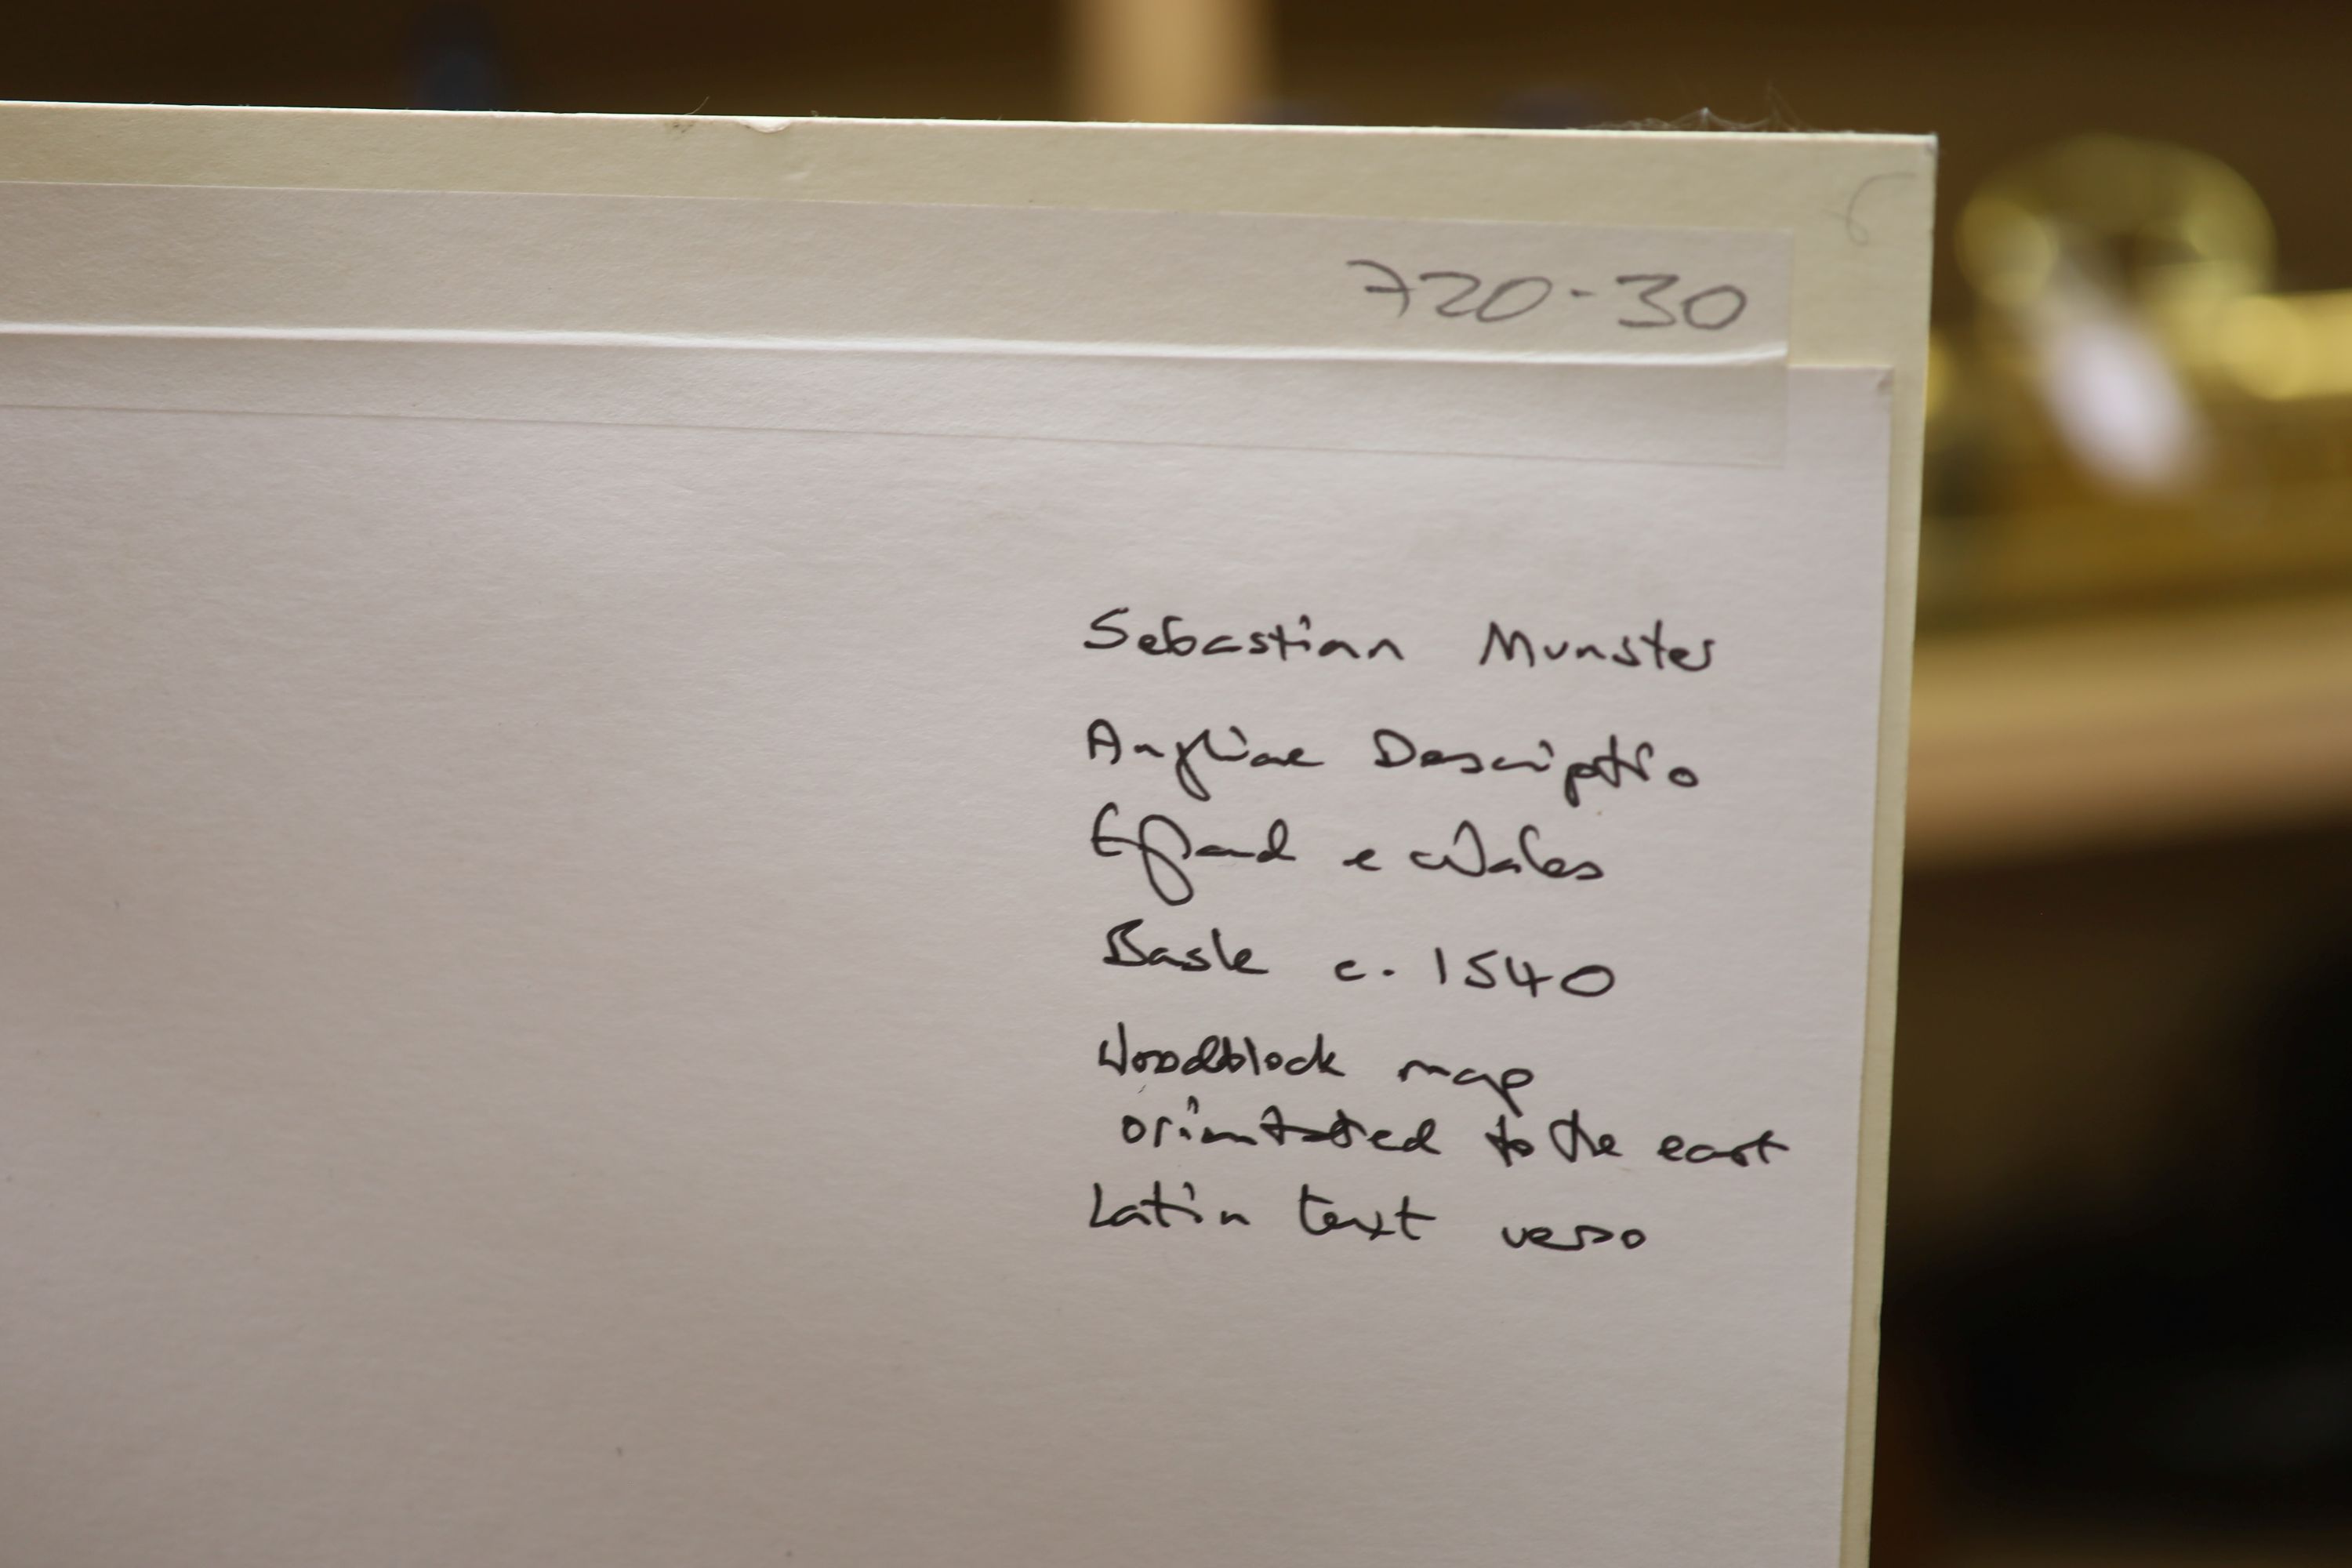 720-30
Sebastian Munster
Angliae Descriptio
England & Wales
Basle c. 1540
Woodblock map
orientated to the east
Latin text verso